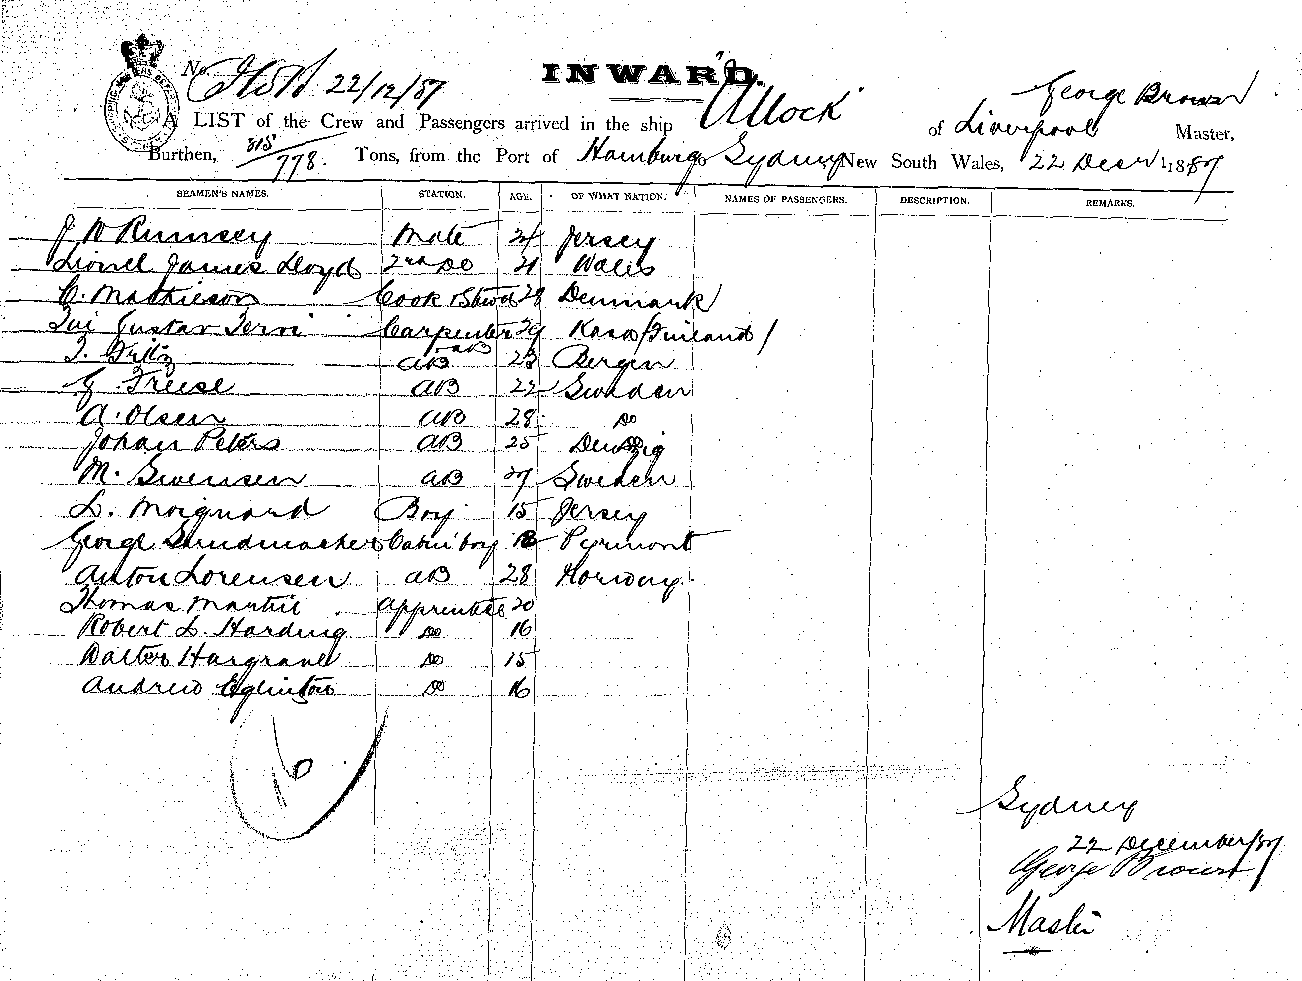 INWARD.
No. 22/12/87
George Brown
A LIST of the Crew and Passengers arrived in the ship of Liverpool Master,
Burthen, 815/778. Tons, from the Port of Hamburg Sydney New South Wales, 22 Decr 1887
SEAMEN'S NAMES. STATION. AGE. OF WHAT NATION. NAMES OF PASSENGERS. DESCRIPTION. REMARKS.
Rumsey Mate Jersey
Lionel James Lloyd 2nd Do 21 Wales
C. Mathieson Cook & Stwd 28 Denmark
Gustav Carpenter 29 (Finland)
AB AB 23 Bergen
Freese AB 22 Sweden
A. Olsen AB 28 Do
Johan Peters AB 25
M. Swensen AB 27 Sweden
L. Moignard Boy 15 Jersey
George Cabin boy Pyrmont
Anton Lorensen AB 28 Norway
Thomas Martin Apprentice 20
Robert L. Harding Do 16
Walter Hargrave Do 15
Andrew Eglinton Do 16
16
Sydney
22 December/87
George Brown
Master